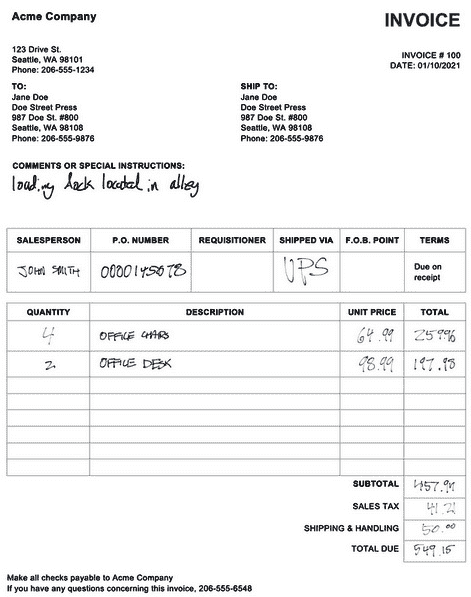 Acme Company
INVOICE
123 Drive St.
Seattle, WA 98101
Phone: 206-555-1234
INVOICE # 100
DATE: 01/10/2021
TO:
Jane Doe
Doe Street Press
987 Doe St. #800
Seattle, WA 98108
Phone: 206-555-9876
SHIP TO:
Jane Doe
Doe Street Press
987 Doe St. #800
Seattle, WA 98108
Phone: 206-555-9876
COMMENTS OR SPECIAL INSTRUCTIONS:
loading dock located in alley
SALESPERSON P.O. NUMBER REQUISITIONER SHIPPED VIA F.O.B. POINT TERMS
JOHN SMITH 0000145678 UPS Due on receipt
QUANTITY DESCRIPTION UNIT PRICE TOTAL
4 OFFICE CHAIRS 64.99 259.96
2 OFFICE DESK 98.99 197.98
SUBTOTAL 457.94
SALES TAX 41.21
SHIPPING & HANDLING 50.00
TOTAL DUE 549.15
Make all checks payable to Acme Company
If you have any questions concerning this invoice, 206-555-6548